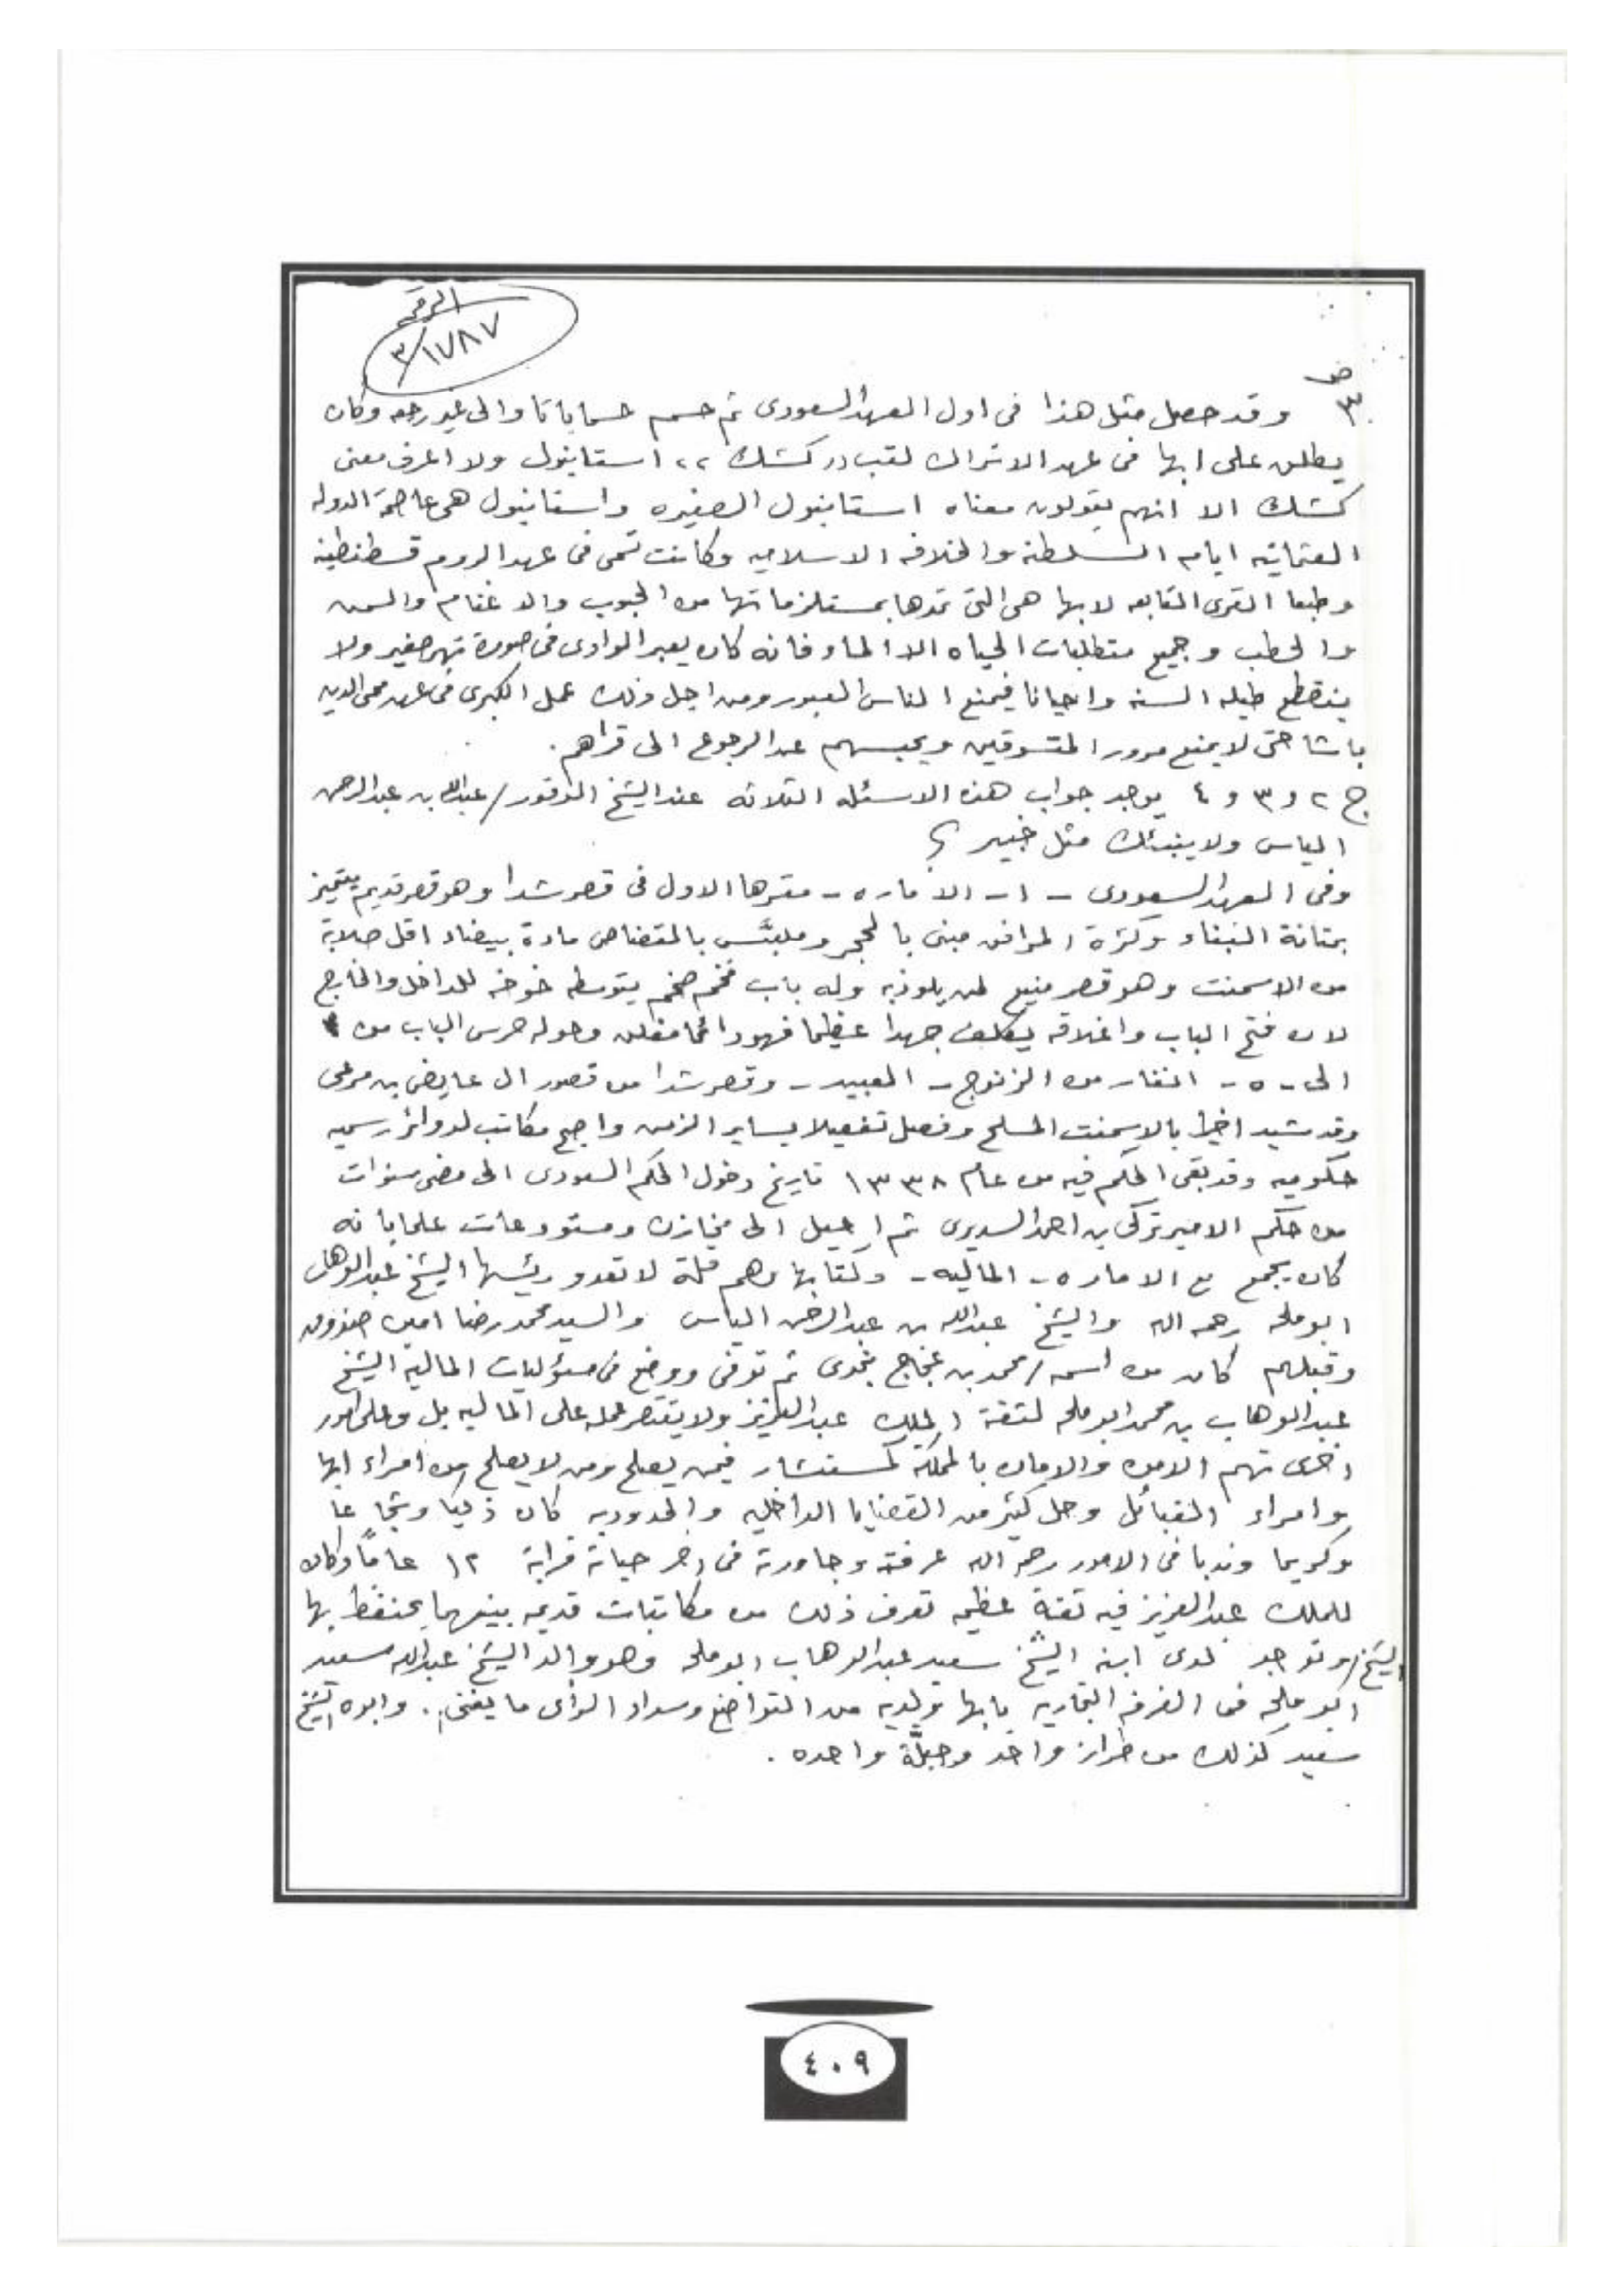 الرقم
٣/١٧٨٧
ص ٣
وقد حصل مثل هذا فى اول العهد السعودى ثم حسم حسما باتا والى غير رجعه وكان
يطلق على ابها فى عهد الاتراك لقب ,, كشك ،، استانبول ولا اعرف معنى
كشك الا انهم يقولون معناه استانبول الصغيره واستانبول هى عاصمة الدوله
العثمانيه ايام السلطنة والخلافه الاسلاميه وكانت تسمى فى عهد الروم قسطنطينه
وطبعا القرى التابعه لابها هى التى تمدها بمستلزماتها من الحبوب والاغنام والسمن
والحطب وجميع متطلبات الحياه الا الماء فانه كان يعبر الوادى فى صورة نهر صغير ولا
ينقطع طيله السنه واحيانا فيمنع الناس العبور ومن اجل ذلك عمل الكبرى فى عهد محى الدين
باشا حتى لا يمنع مرور المتسوقين ويحبسهم عن الرجوع الى قراهم .
ج ٢ و ٣ و ٤ يوجد جواب هذه الاسئله الثلاثه عند الشيخ الوقور / عبدالله بن عبدالرحمن
الياس ولا ينبئك مثل خبير ؟
وفى العهد السعودى - ١ - الاماره - مقرها الاول فى قصر شدا وهو قصر قديم يتميز
بمتانة البناء وكثرة المرافق مبنى بالحجر وملبّس بالقضاض مادة بيضاء اقل صلابة
من الاسمنت وهو قصر منيع لمن يلوذ به وله باب فخم ضخم يتوسطه خوخه للداخل والخارج
لان فتح الباب واغلاقه يكلف جهدا عظيما فهو دائما مغلق وحوله حرس الباب من ٤
الى - ٥ - انفار من الزنوج - العبيد - وقصر شدا من قصور ال عايض بن مرعى
وقد شيد اخيرا بالاسمنت المسلح وفصل تفصيلا يساير الزمن واصبح مكاتب لدوائر رسميه
حكوميه وقد بقى الحكم فيه من عام ١٣٣٨ تاريخ دخول الحكم السعودى الى مضى سنوات
من حكم الامير تركى بن احمد السديرى ثم احيل الى مخازن ومستودعات علما بانه
كان يجمع مع الاماره - الماليه - وكتابها وهم قلة لا تعدو رئسها الشيخ عبدالوهاب
ابوملحه رحمه الله والشيخ عبدالله بن عبدالرحمن الياس والسيد محمد رضا امين صندوق
وقبلهم كان من اسمه / محمد بن عجاج نجدى ثم توفى ووضع فى مسؤليات المالية الشيخ
عبدالوهاب بن محمد ابوملحه لثقة الملك عبدالعزيز ولا يقتصر عمله على الماليه بل وعلى امور
اخرى تهم الامن والامان بالمملكة كمستشار فيمن يصلح ومن لا يصلح من امراء ابها
وامراء القبائل وحل كثير من القضايا الداخليه والحدوديه كان ذكيا وشجاعا
وكريما وندبا فى الامور رحمه الله عرفته وجاورته فى اخر حياتة قرابة ١٢ عامًا وكان
للملك عبدالعزيز فيه ثقة عظيمه تعرف ذلك من مكاتبات قديمه بينهما يحتفظ بها
الشيخ / وتوجد لدى ابنه الشيخ سعيد عبدالوهاب ابوملحه وهو والد الشيخ عبدالله سعيد
ابوملحه فى الغرفه التجاريه بابها ولديه من التواضع وسداد الرأى ما يغنى . وابوه الشيخ
سعيد كذلك من طراز واحد وجبلّة واحده .
٤٠٩